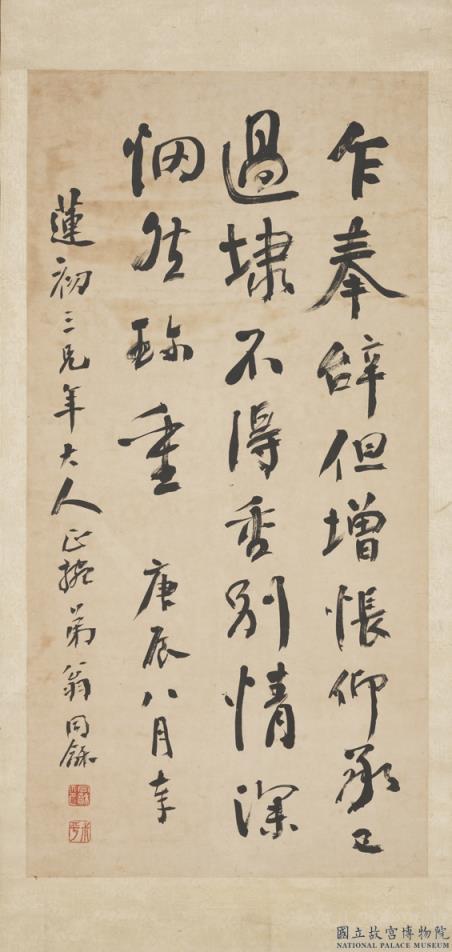 乍奉辭但增悵仰承已
過埭不得別情深
惘然珍重 庚辰八月
蓮初三兄年大人正 弟翁同龢
國立故宮博物院
NATIONAL PALACE MUSEUM